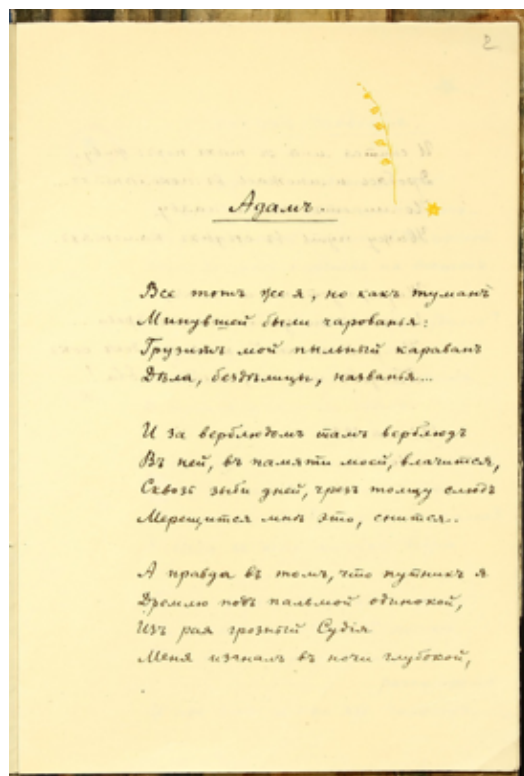 2
Адамъ.
Все тотъ же я, но какъ туманъ
Минувшей были чарованья:
Грузитъ мой пыльный караванъ
Дѣла, бездѣлицы, названья...
И за верблюдомъ тамъ верблюдъ
Въ ней, въ памяти моей, влачится,
Сквозь зыби дней, чрезъ толщу слюдъ
Мерещится мнѣ это, снится..
А правда въ томъ, что путникъ я
Дремлю подъ пальмой одинокой,
Изъ рая грозный Судія
Меня изгналъ въ ночи глубокой,